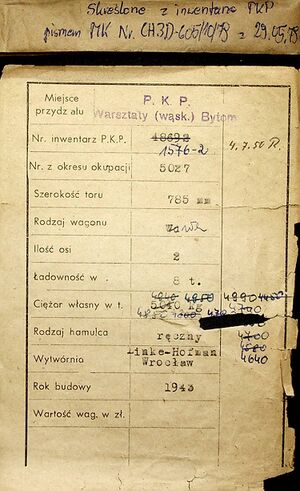 Skreślone z inwentarza PKP
pismem MK Nr. CH3D-605/10/78 z 29.05.78
Miejsce przydziału P. K. P. Warsztaty (wąsk.) Bytom
Nr. inwentarz P.K.P. 18693 1576-2 4.7.50 R
Nr. z okresu okupacji 5027
Szerokość toru 785 mm
Rodzaj wagonu
Ilość osi 2
Ładowność w . 8 t.
Ciężar własny w t. 5040 kg 4840 4850 4890
Rodzaj hamulca ręczny 4700
4680
Wytwórnia Linke-Hofman Wrocław 4640
Rok budowy 1943
Wartość wag. w zł.